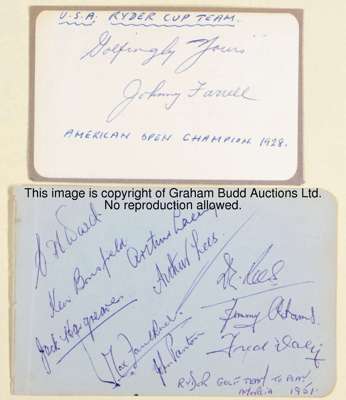 U.S.A. RYDER CUP TEAM.
"Golfingly Yours"
Johnny Farrell
AMERICAN OPEN CHAMPION 1928.
This image is copyright of Graham Budd Auctions Ltd.
No reproduction allowed.
C H Ward
Ken Bousfield
Arthur Lacey
Arthur Lees.
Jack Hargreaves
Max Faulkner
John Panton
D. Rees
Jimmy Adams
Fred Daly
RYDER GOLF TEAM TO PLAY
1951.